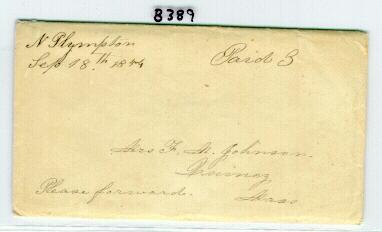 8389
N Plympton
Sep 18th 18
Paid 3
Mrs F. M. Johnson.
Quincy
Please forward.
Mass